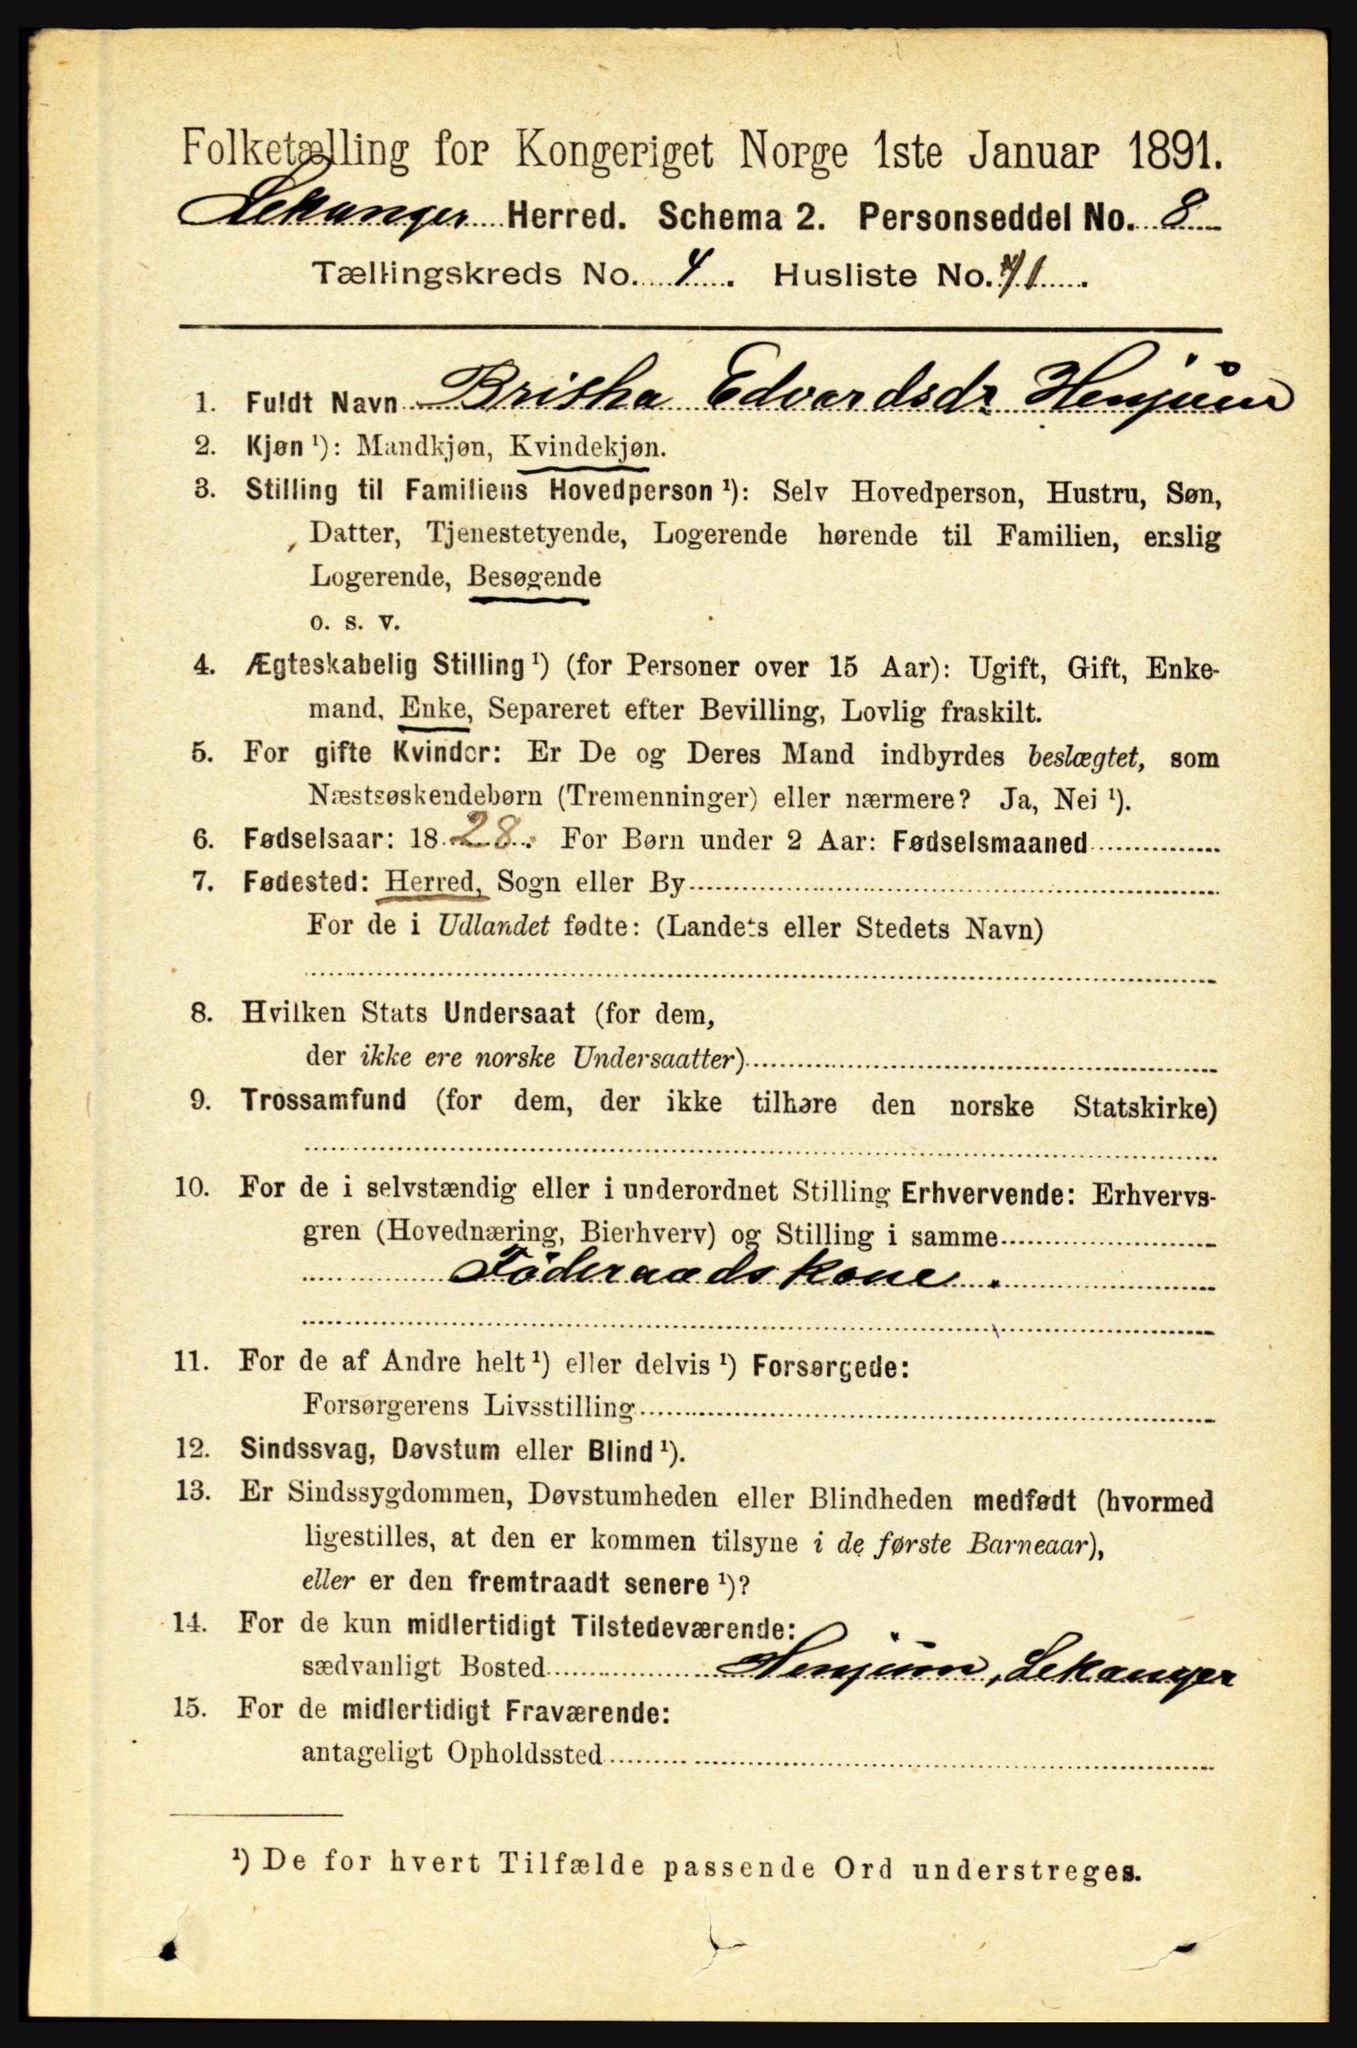 Folketælling for Kongeriget Norge 1ste Januar 1891.
Lekanger Herred. Schema 2. Personseddel No. 8
Tællingskreds No. 4. Husliste No. 41.
1. Fuldt Navn Britha Edvardsdr Henjum
2. Kjøn ¹): Mandkjøn, Kvindekjøn.
3. Stilling til Familiens Hovedperson ¹): Selv Hovedperson, Hustru, Søn,
Datter, Tjenestetyende, Logerende hørende til Familien, enslig
Logerende, Besøgende
o. s. v.
4. Ægteskabelig Stilling ¹) (for Personer over 15 Aar): Ugift, Gift, Enke-
mand, Enke, Separeret efter Bevilling, Lovlig fraskilt.
5. For gifte Kvinder: Er De og Deres Mand indbyrdes beslægtet, som
Næstsøskendebørn (Tremenninger) eller nærmere? Ja, Nei ¹).
6. Fødselsaar: 1828. For Børn under 2 Aar: Fødselsmaaned
7. Fødested: Herred, Sogn eller By
For de i Udlandet fødte: (Landets eller Stedets Navn)
8. Hvilken Stats Undersaat (for dem,
der ikke ere norske Undersaatter)
9. Trossamfund (for dem, der ikke tilhøre den norske Statskirke)
10. For de i selvstændig eller i underordnet Stilling Erhvervende: Erhvervs-
gren (Hovednæring, Bierhverv) og Stilling i samme
Föderaadskone.
11. For de af Andre helt ¹) eller delvis ¹) Forsørgede:
Forsørgerens Livsstilling
12. Sindssvag, Døvstum eller Blind ¹).
13. Er Sindssygdommen, Døvstumheden eller Blindheden medfødt (hvormed
ligestilles, at den er kommen tilsyne i de første Barneaar),
eller er den fremtraadt senere ¹)?
14. For de kun midlertidigt Tilstedeværende:
sædvanligt Bosted Henjum, Lekanger
15. For de midlertidigt Fraværende:
antageligt Opholdssted
¹) De for hvert Tilfælde passende Ord understreges.